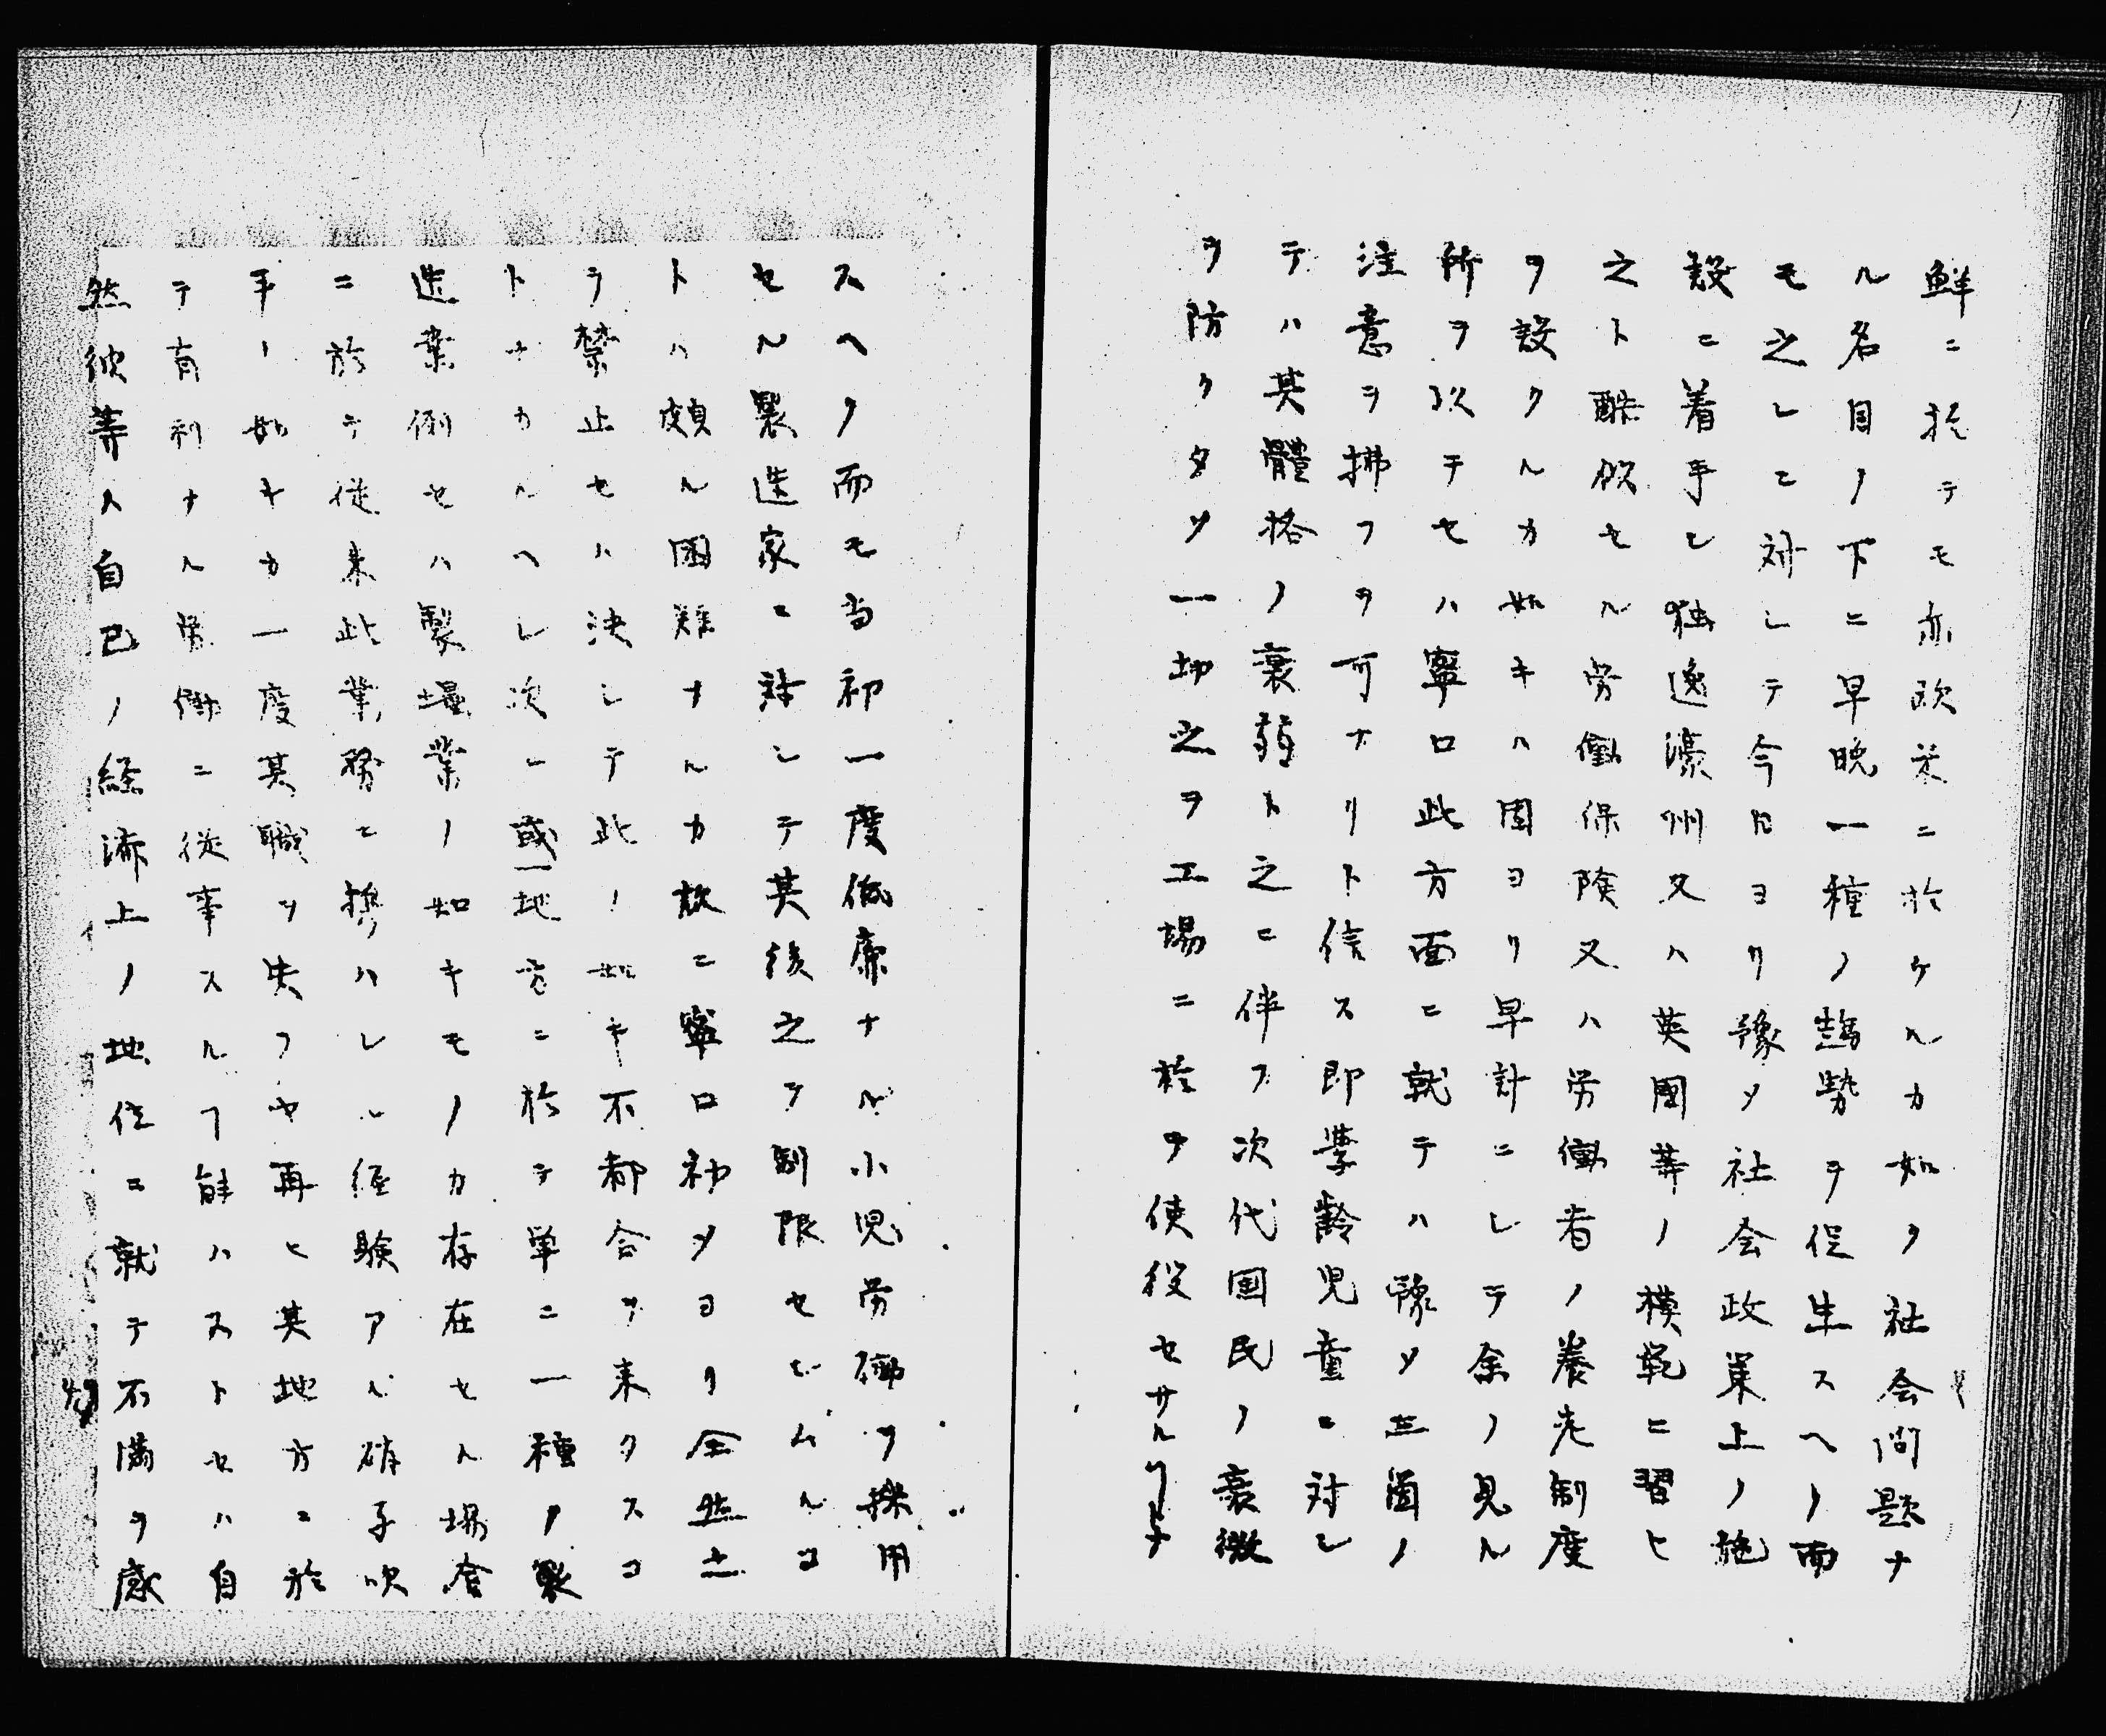 鮮ニ於テモ亦欧米ニ於ケルカ如ク社会問題ナ
ル名目ノ下ニ早晩一種ノ趨勢ヲ促生スヘク而
モ之レニ対シテ今日ヨリ豫メ社会政策上ノ施
設ニ着手シ独逸濠州又ハ英國等ノ模範ニ習ヒ
之ト酷似セル労働保険又ハ労働者ノ養老制度
ヲ設クルカ如キハ固ヨリ早計ニシテ余ノ見ル
所ヲ以テセハ寧ロ此方面ニ就テハ豫メ三箇ノ
注意ヲ拂フヲ可ナリト信ス即學齢児童ニ対シ
テハ其體格ノ衰弱ト之ニ伴フ次代国民ノ衰微
ヲ防クタメ一切之ヲ工場ニ於ヲ使役セサル
スヘク而モ当初一度低廉ナル小児労働ヲ採用
セル製造家ニ対シテ其後之ヲ制限セシムルコ
トハ頗ル困難ナルカ故ニ寧ロ初メヨリ全然之
ヲ禁止セハ決シテ此ノ如キ不都合ヲ来タスコ
トナカルヘシ次ニ或一地方ニ於テ単ニ一種ノ製
造業例セハ製塩業ノ如キモノカ存在セル場合
ニ於テ従来此業務ニ携ハレル経験アル硝子吹
手ノ如キカ一度其職ヲ失フヤ再ヒ其地方ニ於
テ有利ナル労働ニ従事スルコト能ハストセハ自
然彼等ハ自己ノ経済上ノ地位ニ就テ不満ヲ感